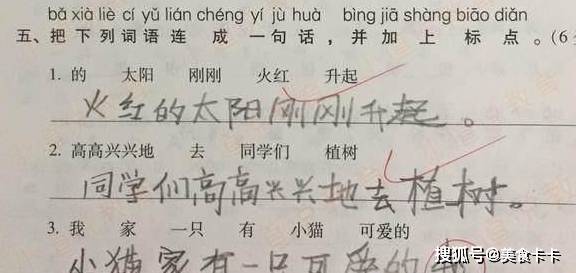 bǎ xià liè cí yǔ lián chéng yí jù huà bìng jiā shàng biāo diǎn
五、把下列词语连成一句话，并加上标点。（6
1. 的 太阳 刚刚 火红 升起
火红的太阳刚刚升起。
2. 高高兴兴地 去 同学们 植树
同学们高高兴兴地去植树。
3. 我 家 一只 有 小猫 可爱的
小猫家有一只可爱的
搜狐号@美食卡卡